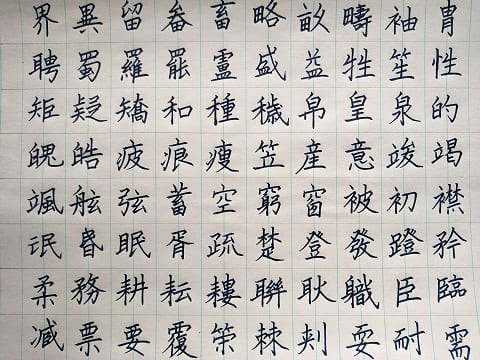 界異留畚畜略畝疇袖胄
聘蜀羅罷盧盛益牲笙性
矩疑矯和種穢帛皇泉的
魄皓疲痕瘦笠産意竣竭
颯舷弦蓄空窮窗被初襟
氓昏眠胥疏楚登發蹬矜
柔務耕耘耬聯耿職臣臨
减票要覆策棘刺耍耐需